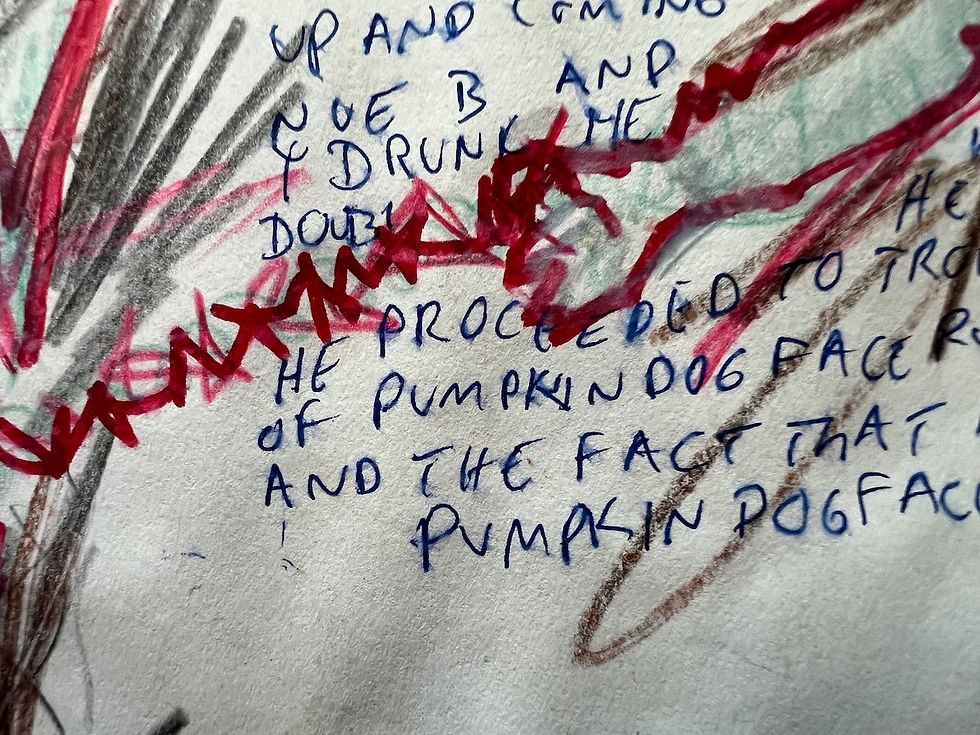 UP AND COMING
NUE B AND
Y DRUNK ME
DOUBL
HE
HE PROCEEDED TO TRO
OF PUMPKIN DOG FACE R
AND THE FACT THAT
! PUMPKIN DOGFACE